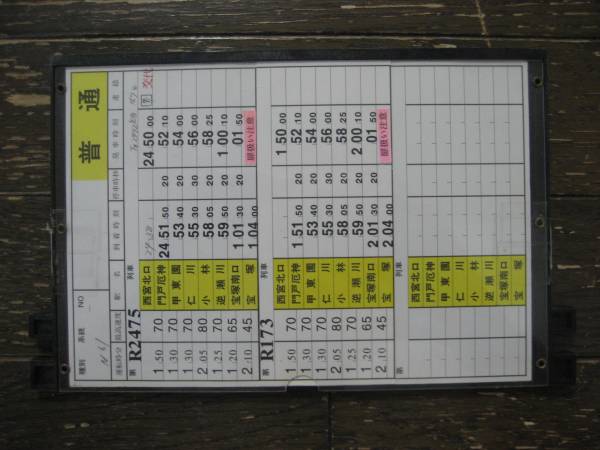 種別 系統 NO 普通
運転時分 最高速度 駅名 到着時刻 停車時秒 発車時刻
第 R2475 列車
西宮北口 24 50 00 交代
1 50 70 門戸厄神 24 51 50 20 52 10
1 30 70 甲東園 53 40 20 54 00
1 30 70 仁川 55 30 30 56 00
2 05 80 小林 58 05 20 58 25
1 25 70 逆瀬川 59 50 20 1 00 10
1 20 65 宝塚南口 1 01 30 20 01 50
2 10 45 宝塚 1 04 00 扉扱い注意
第 R173 列車
西宮北口 1 50 00
1 50 70 門戸厄神 1 51 50 20 52 10
1 30 70 甲東園 53 40 20 54 00
1 30 70 仁川 55 30 30 56 00
2 05 80 小林 58 05 20 58 25
1 25 70 逆瀬川 59 50 20 2 00 10
1 20 65 宝塚南口 2 01 30 20 01 50
2 10 45 宝塚 2 04 00 扉扱い注意
第 列車
西宮北口
門戸厄神
甲東園
仁川
小林
逆瀬川
宝塚南口
宝塚